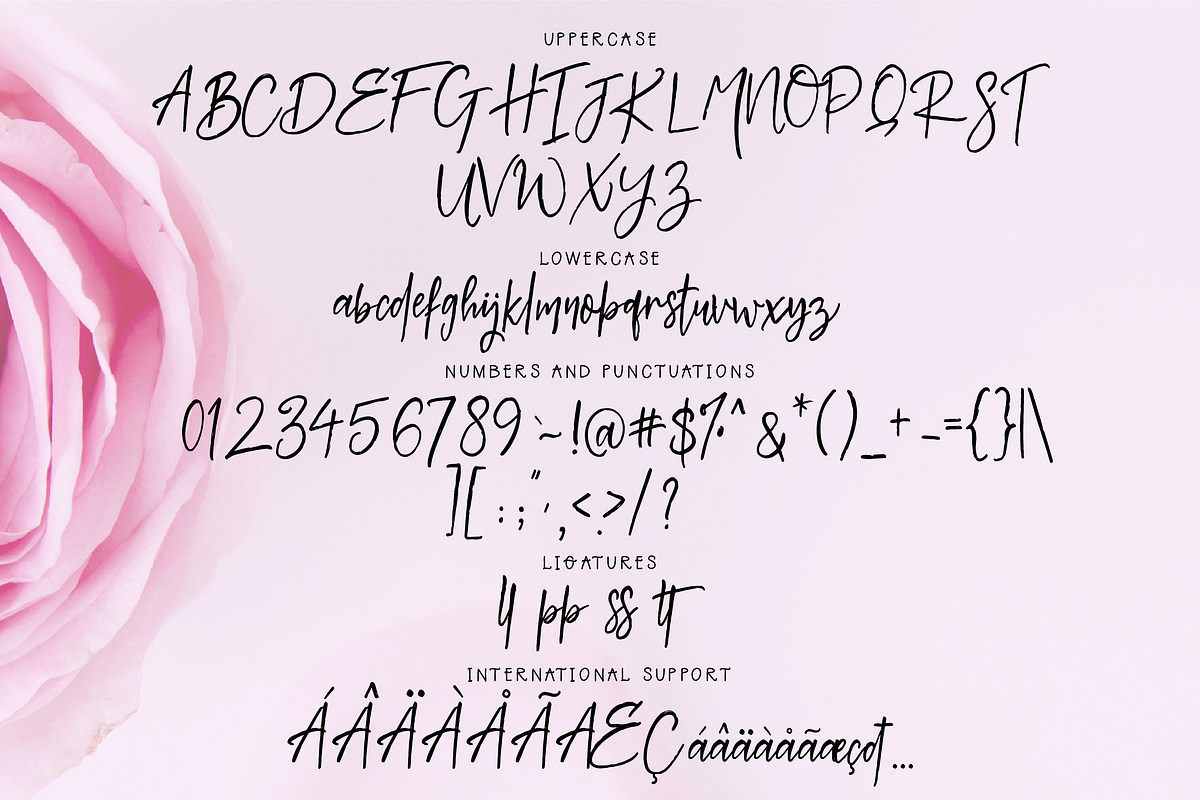 UPPERCASE
ABCDEFGHIJKLMNOPQRST
UVWXYZ
LOWERCASE
abcdefghijklmnopqrstuvwxyz
NUMBERS AND PUNCTUATIONS
0123456789`~!@#$%^&*()_+-={}|\
][:;"',<.>/?
LIGATURES
ll pp ss tt
INTERNATIONAL SUPPORT
ÁÂÄÀÅÃÆÇáâäàåãæçđ...